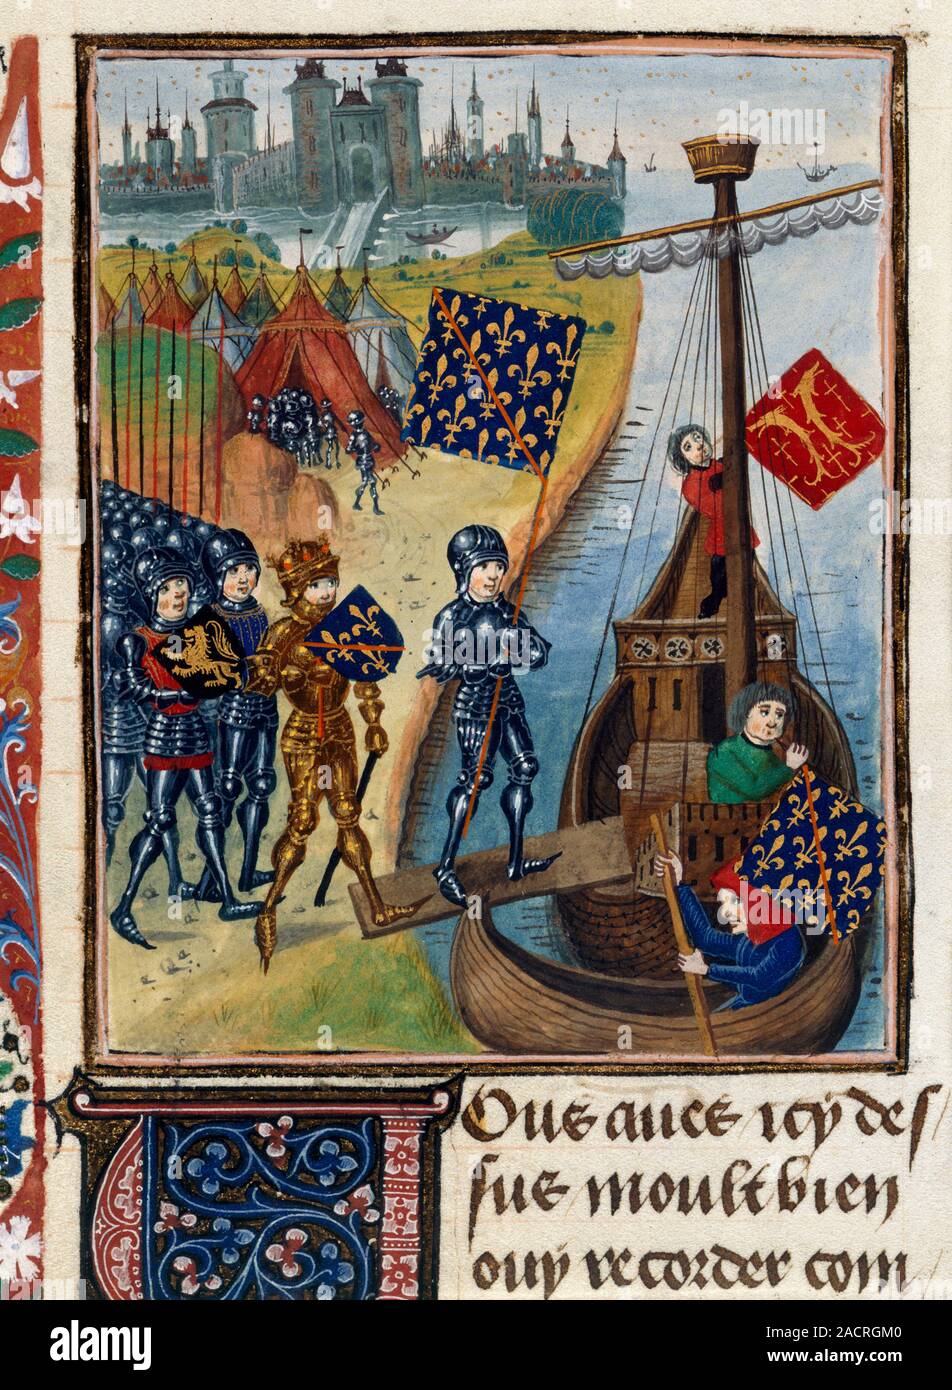 Ous aues icy des
sus moult bien
ouy recorder com
alamy
Image ID: 2ACRGM0
www.alamy.com